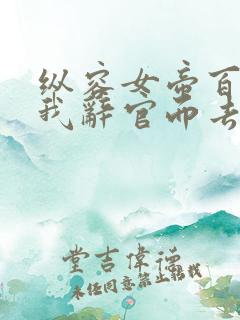 纵容女帝百
我辞官而去
堂吉偉德
未经同意禁止转载